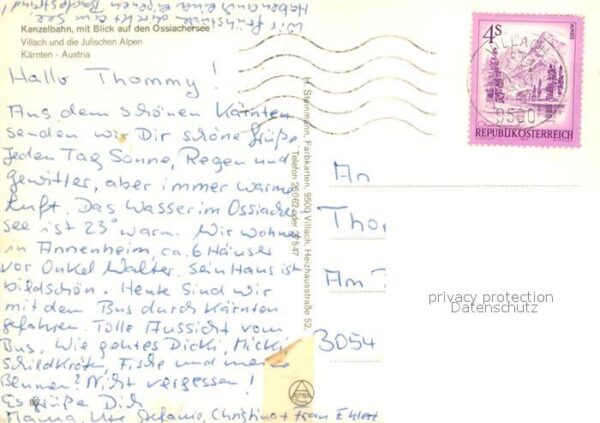 Wir frühstücken direkt am See
Haben auch einen eigenen Badestrand!
Kanzelbahn, mit Blick auf den Ossiachersee
Villach und die Julischen Alpen
Kärnten - Austria
Hallo Thommy!
Aus dem schönen Kärnten
senden wir Dir schöne Grüße
Jeden Tag Sonne, Regen und
Gewitter, aber immer warme
Luft. Das Wasser im Ossiacher
see ist 23° warm. Wir wohnen
in Annenheim, ca. 6 Häuser
vor Onkel Walter. Sein Haus ist
bildschön. Heute sind wir
mit dem Bus durch Kärnten
gefahren. Tolle Aussicht vom
Bus. Wie gehts Dicki, Micki,
Schildkröte, Fische und meine
Blumen? Nicht vergessen!
Es grüße Dich
Mama, Ute Stefanie, Christina + Frau Ehlert
H. Steinmann, Farbkarten, 9500 Villach, Heizhausstraße 52,
4S
REPUBLIK ÖSTERREICH
VILLACH
9500
An
Tho
Am
3054
privacy protection
Datenschutz